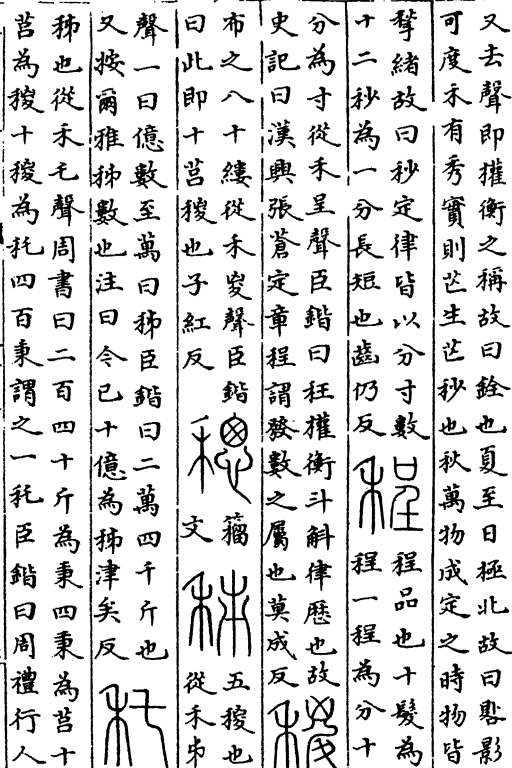 又去聲即㩲衡之稱故曰銓也夏至日極北故曰晷影
可度禾有秀實則芒生芒秒也秋萬物成定之時物皆
孳緒故曰秒定律皆以分寸數
十二秒為一分長短也齒仍反
程
程品也十髮為
程一程為分十
分為寸從禾呈聲臣鍇曰枉㩲衡斗斛律歷也故
史記曰漢興張蒼定章程謂發數之屬也莫成反
稯
布之八十縷從禾㚇聲臣鍇
曰此即十筥稯也子紅反
籀
文
秭
五稯也
從禾𠂔
聲一曰億數至萬曰秭臣鍇曰二萬四千斤也
又按爾雅秭數也注曰今已十億為秭津矣反
秅
秭也從禾乇聲周書曰二百四十斤為秉四秉為筥十
筥為稯十稯為秅四百秉謂之一秅臣鍇曰周禮行人